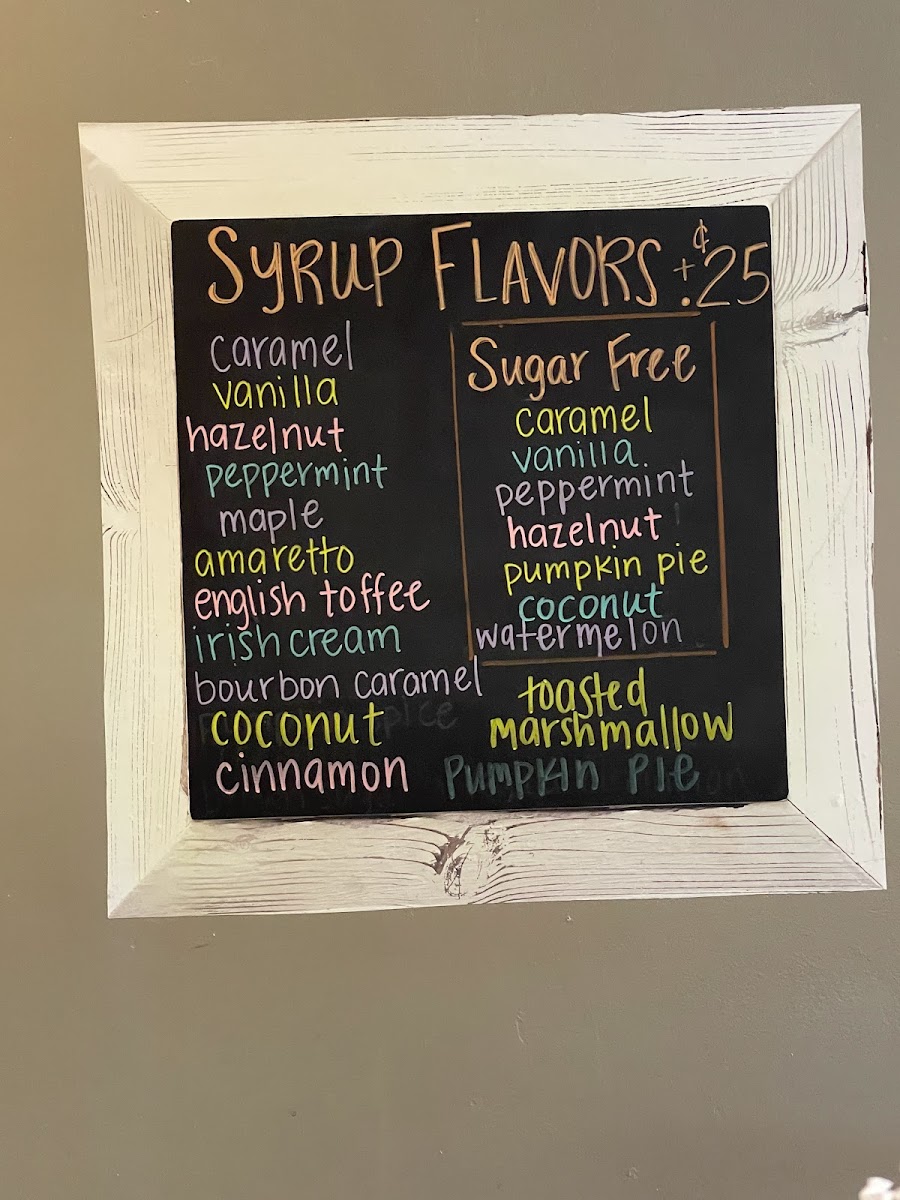 SYRUP FLAVORS +¢.25
caramel
vanilla
hazelnut
peppermint
maple
amaretto
english toffee
irish cream
bourbon caramel
coconut
cinnamon
Sugar Free
caramel
vanilla
peppermint
hazelnut
pumpkin pie
coconut
watermelon
toasted
marshmallow
Pumpkin Pie